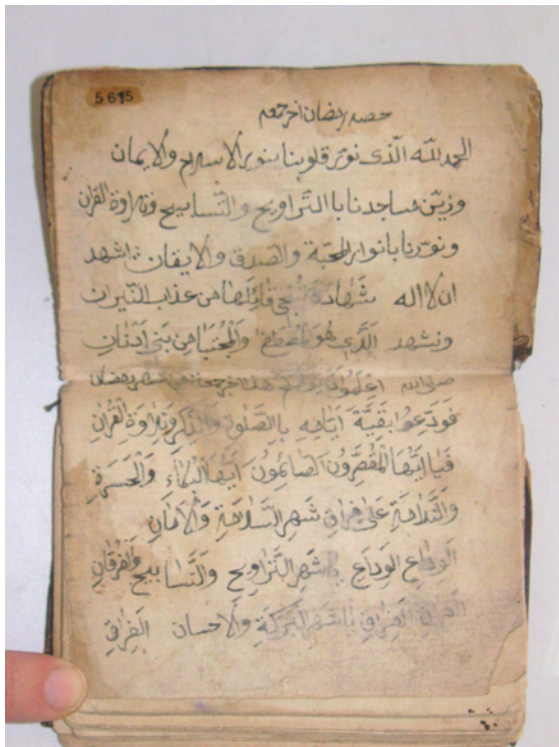 5615
حصه رمضان اخر جمعه
الحمد لله الذى نوّر قلوبنا بنوير الاسلام والايمان
وزيّن مساجدنا با التّراويح والتّسابيح وتلاوة القران
ونوّرنا بانوار المحبة والصدق والايقان اشهد
ان لا اله شَهادة قائلها من عذاب النّيران
ونشهد الَّذِي هُوَ المُصْطفى من بَنى اَدْنانِ
صلى الله اِعْلَمُوا هذا اخر جمعة من شهر رمضان
فودّعوا بقيَّة اَيّامِهِ باِالصَّلوة والذّكر وتلاوة القُرانِ
فَيا اَيّها المُقصِّرُونَ الصّائمُونَ اَيْنَ البُكاءِ وَالحَسرَةِ
وَالنَّدامَةِ عَلى فِراقِ شَهرِ السَّلامَةِ وَالاَمانِ
الوداع الوِداعِ ياشَهرِ التَّراويحِ وَالتّسابيح وَالفُرقانِ
الفراق الفِراقِ ياشهر البَرَكَةِ وَالاحسان الفِراقِ